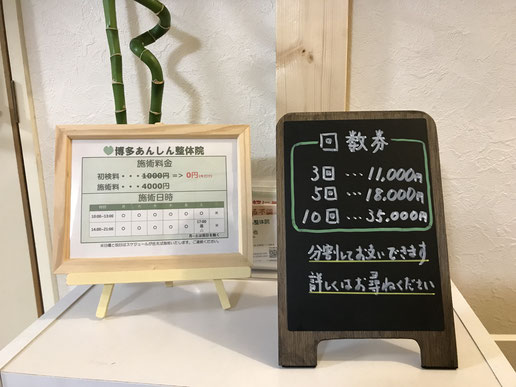 博多あんしん整体院
施術料金
初検料・・・1000円 => 0円
施術料・・・4000円
施術日時
10:00~13:00 ○ ○ ○ ○ ○ ○
14:00~21:00 ○ ○ ○ ○ ○ 17:00
回数券
3回 … 11,000円
5回 … 18,000円
10回 … 35,000円
分割してお支いできます
詳しくはお尋ねください